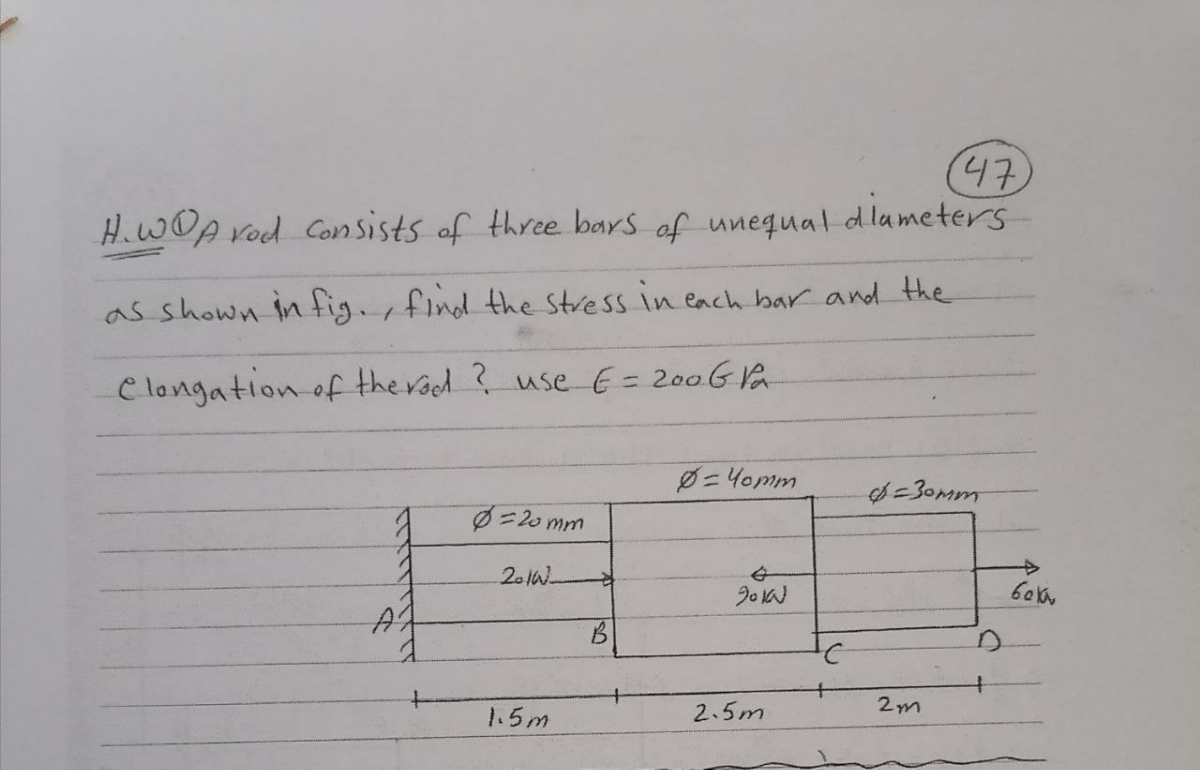 47
H.W① A rod consists of three bars of unequal diameters
as shown in fig., find the stress in each bar and the
elongation of the rod ? use E = 200 GPa
Ø = 40mm
Ø = 30mm
Ø = 20mm
20 kN
90 kN
60 kN
A
B
C
D
1.5m
2.5m
2m